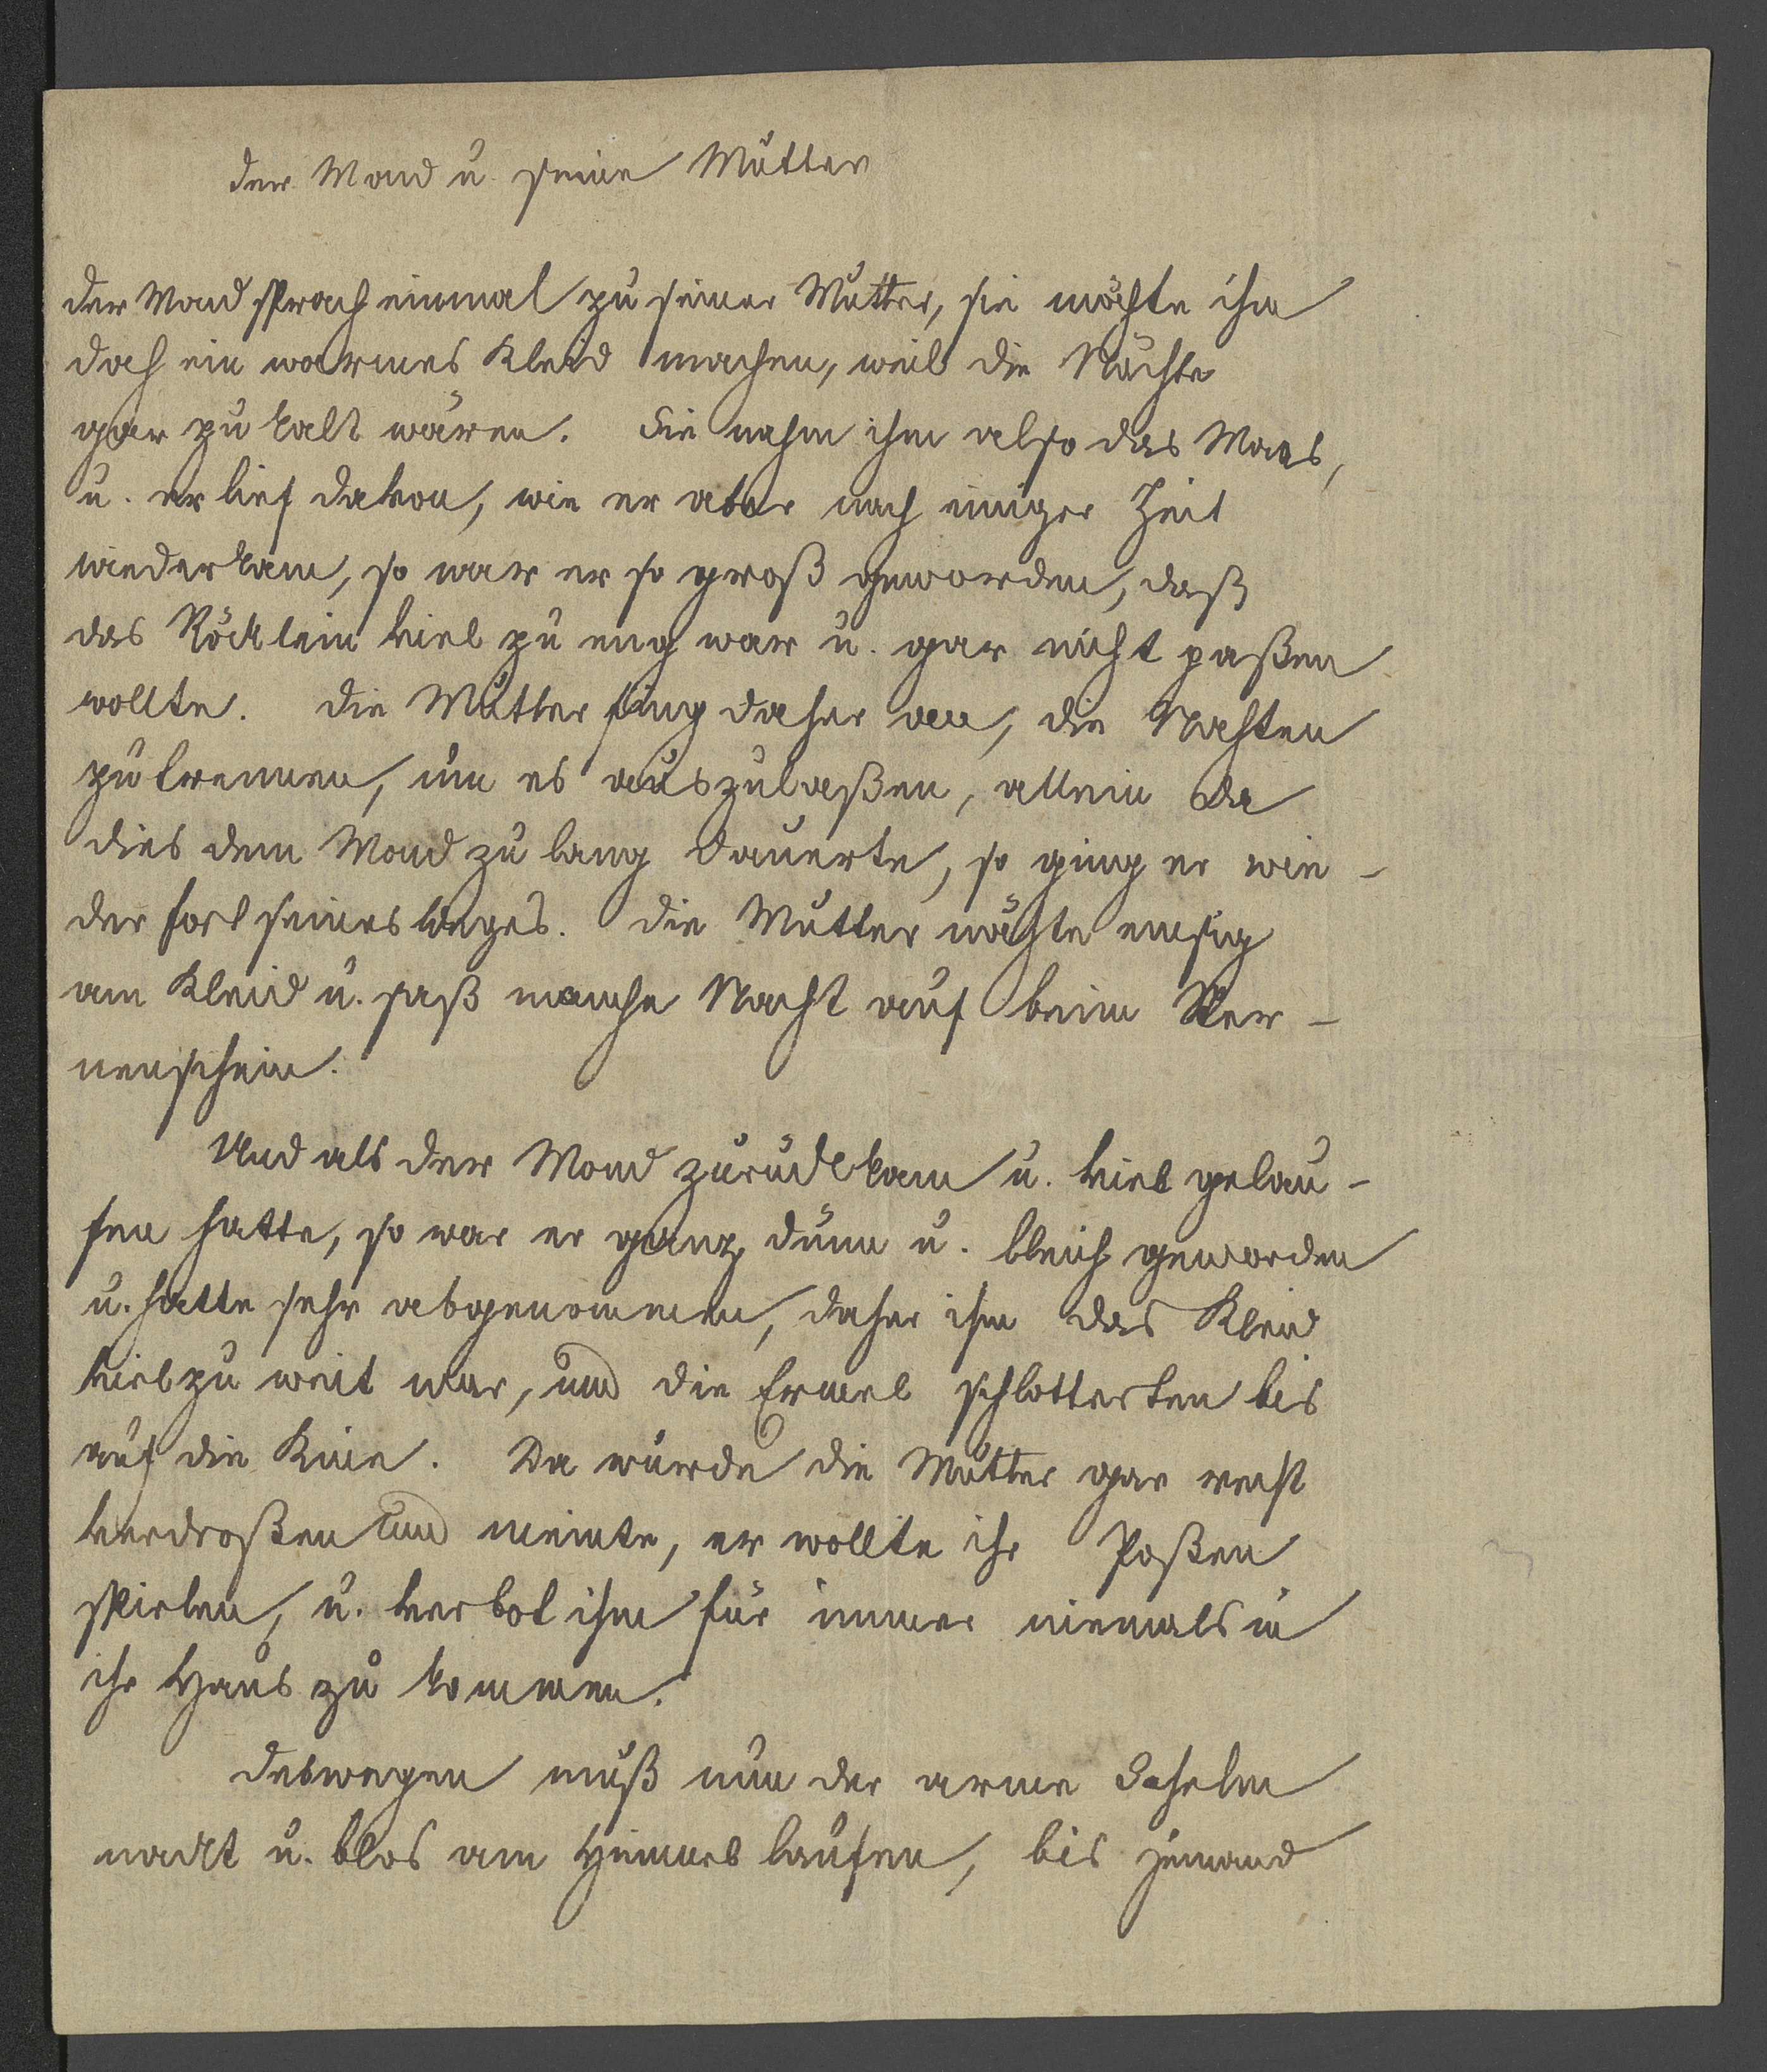 der Mond u. seine Mutter
der Mond sprach einmal zu seiner Mutter, sie möchte ihm
doch ein warmes Kleid machen, weil die Nächte
gar zu kalt wären. Sie nahm ihm also das Maas,
u. er lief davon, wie er aber nach einiger Zeit
wiederkam, so war er so groß geworden, daß
das Röcklein viel zu eng war u. gar nicht paßen
wollte. die Mutter fing daher an, die Nahten
zu trennen, um es auszulaßen, allein da
dies dem Mond zu lang dauerte, so ging er wie-
der fort seines Weges. die Mutter nähte emsig
am Kleid u. saß manche Nacht auf beim Ster-
nenschein.
Und als der Mond zurückkam u. viel gelau-
fen hatte, so war er ganz dünn u. bleich geworden
u. hatte sehr abgenommen, daher ihm das Kleid
viel zu weit war, und die Ermel schlotterten bis
auf die Knie. Da wurde die Mutter gar verdroßen
verdroßen und meinte, er wollte ihr Poßen
spielen, u. verbot ihm für immer niemals in
ihr Haus zu kommen.
deswegen muß nun der arme Schelm
nackt u. blos am Himmel laufen, bis jemand